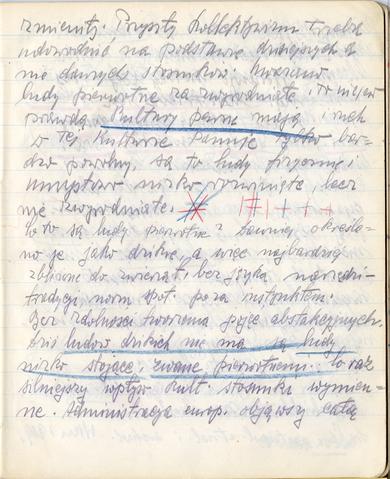 zmienić. Przysły kollektywizm trzeba
udowodnić na podstawie dzisiejszych a
nie dawnych stosunków. Uważano
ludy pierwotne za zwyrodniałe. To nie jest
prawdą. Kultury pewne mają i ruch
w tej kulturze panuje tylko bar-
dzo powolny, są to ludy fizycznie i
umysłowo nisko rozwinięte, lecz
nie zwyrodniałe.
Co to są ludy pierwotne? Dawniej określa-
no je jako dzikie, a więc najbardziej
zbliżone do zwierząt, bez języka, narzędzi,
tradycji, norm społ. poza instynktem.
Bez zdolności tworzenia pojęć abstrakcyjnych.
Dziś ludów dzikich nie ma są ludy
nisko stojące, zwane pierwotnemi. Coraz
silniejszy wpływ kult. stosunki wymien-
ne. Administracja europ. objąwszy całą